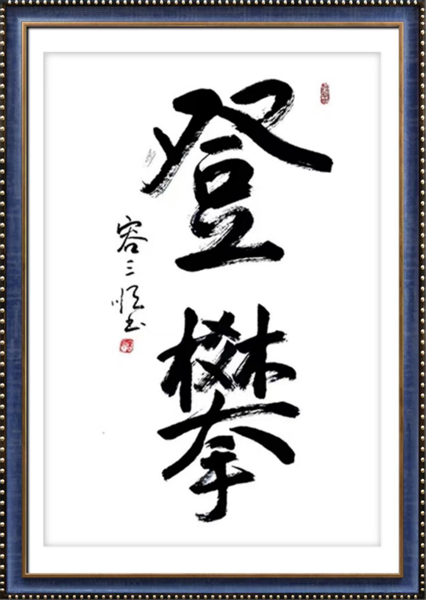 登攀
容三书